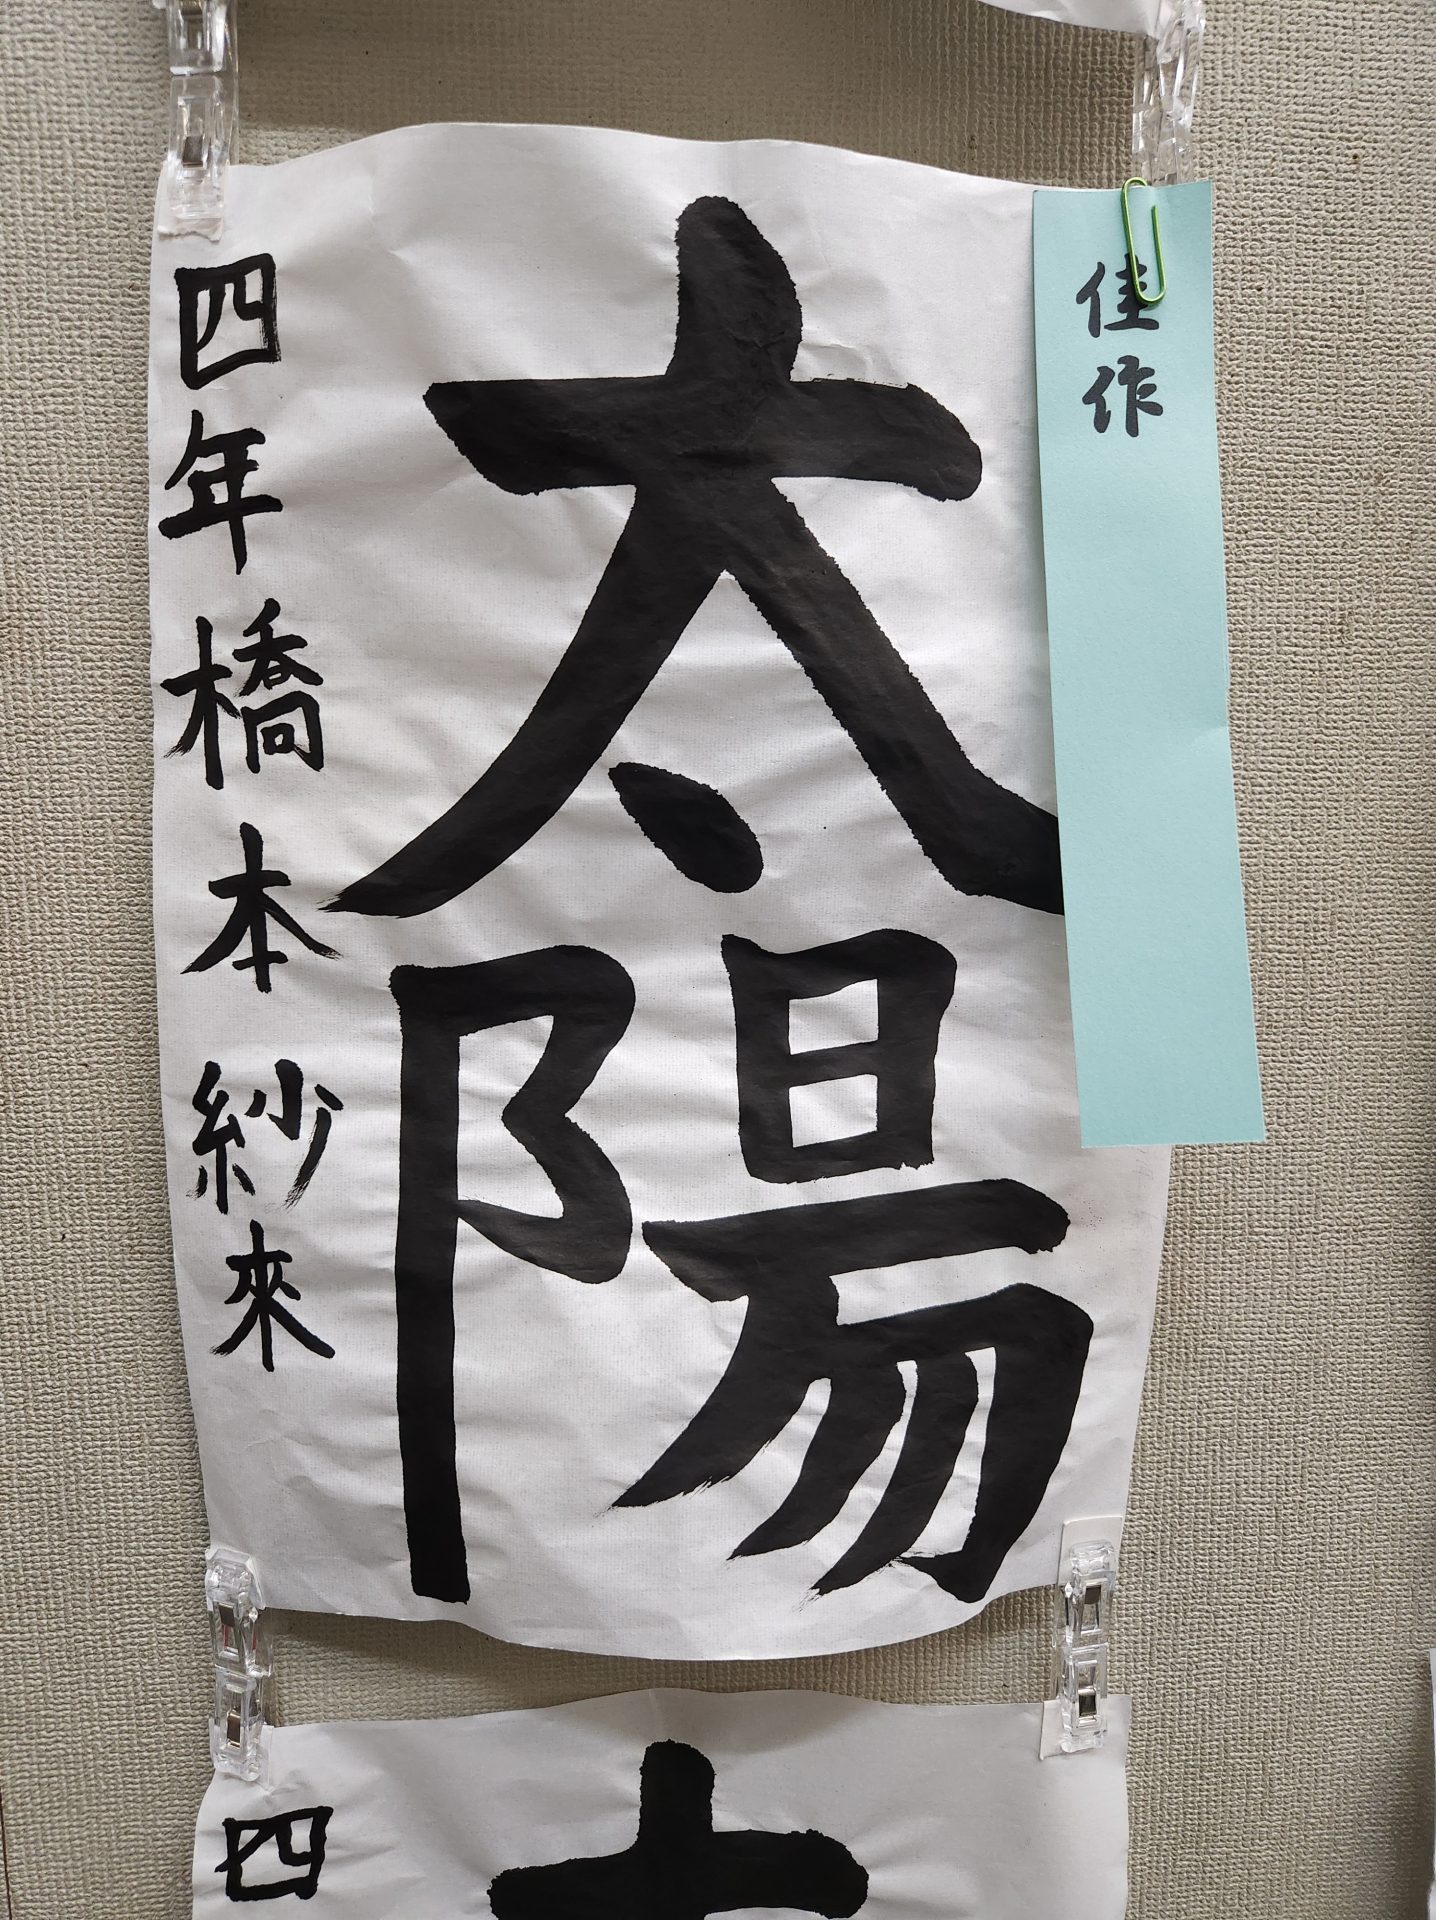 佳作
太陽
四年橋本紗來
四